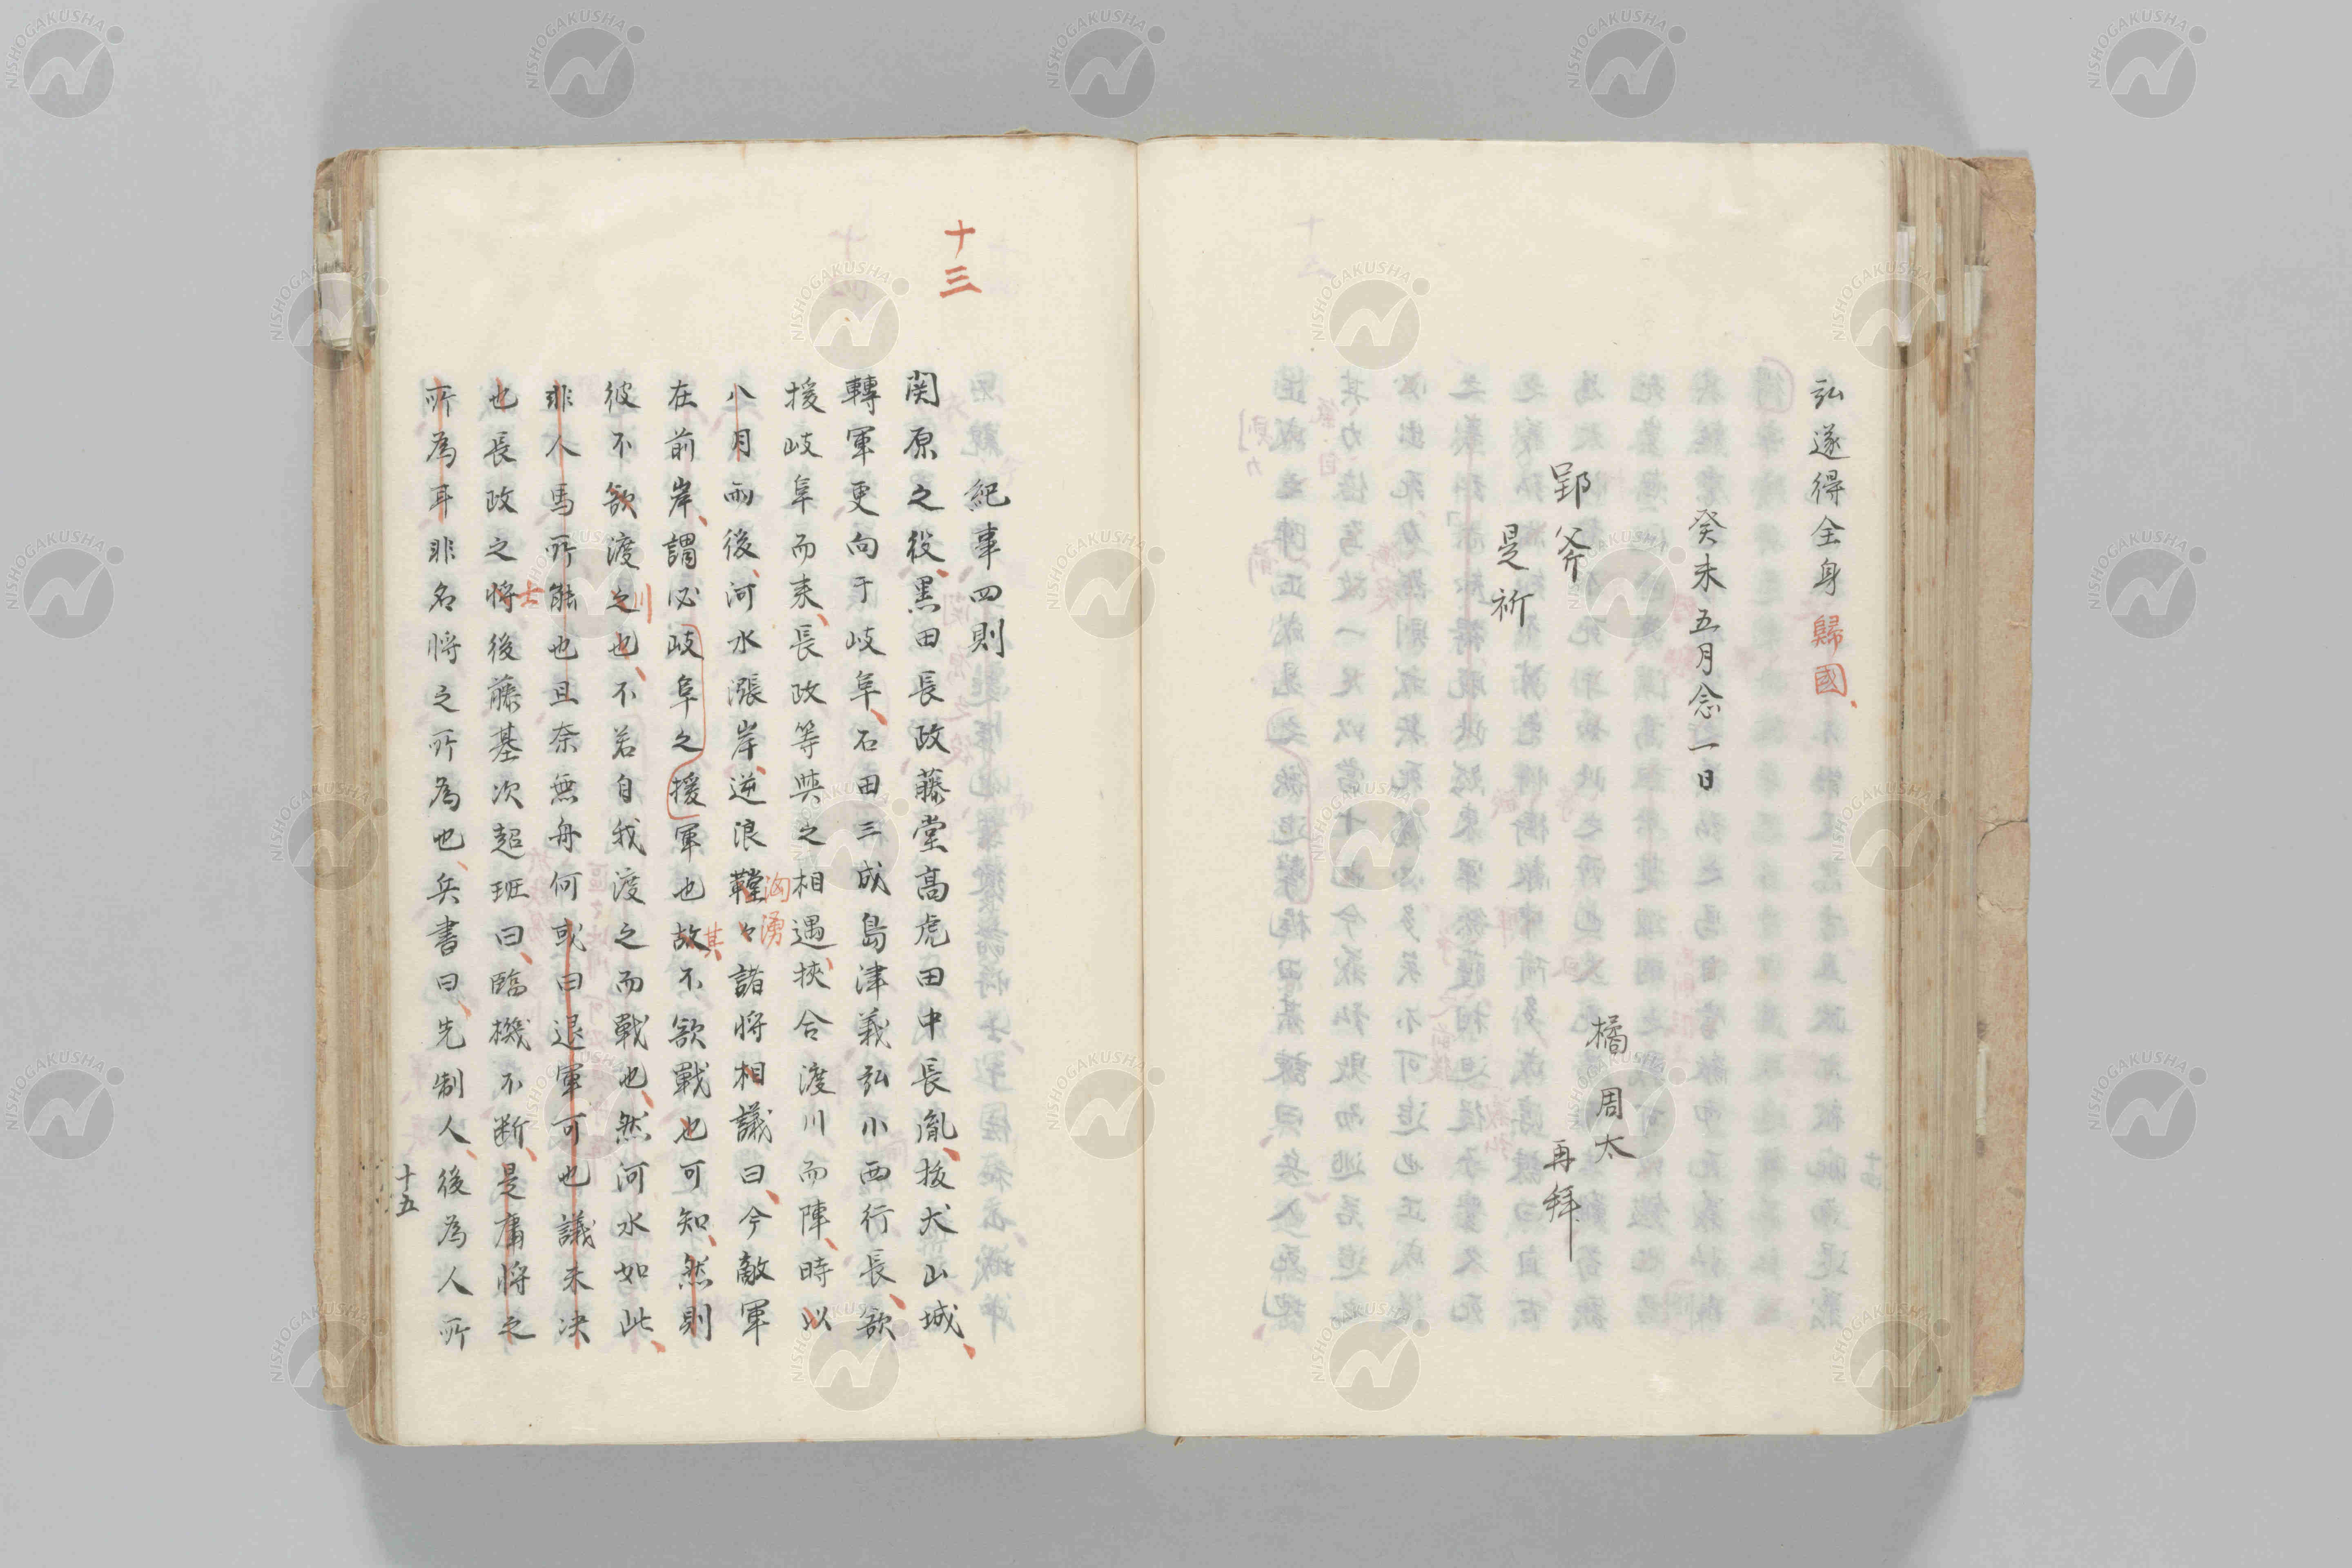 弘遂得全身歸國、
癸未五月念一日
橘周太
再拜
郢斧
是祈
十三
紀事四則
関原之役、黒田長政藤堂高虎田中長胤、抜犬山城、
轉軍更向于岐阜、石田三成島津義弘小西行長、欲
援岐阜而来、長政等與之相遇、挾合渡川而陣、時以
八月雨後、河水漲岸、逆浪鞺々諸将相議曰、今敵軍
洶湧
在前岸、謂必岐阜之援軍也故不欲戰也可知、然則
其
彼不欲渡之也、不若自我渡之而戰也、然河水如此、
川
非人馬所能也且奈無舟何或曰退軍可也議未决
也長政之将後藤基次超班曰、臨機不断、是庸将之
士
所為耳非名将之所為也、兵書曰、先制人、後為人所
十五
NISHOGAKUSHA